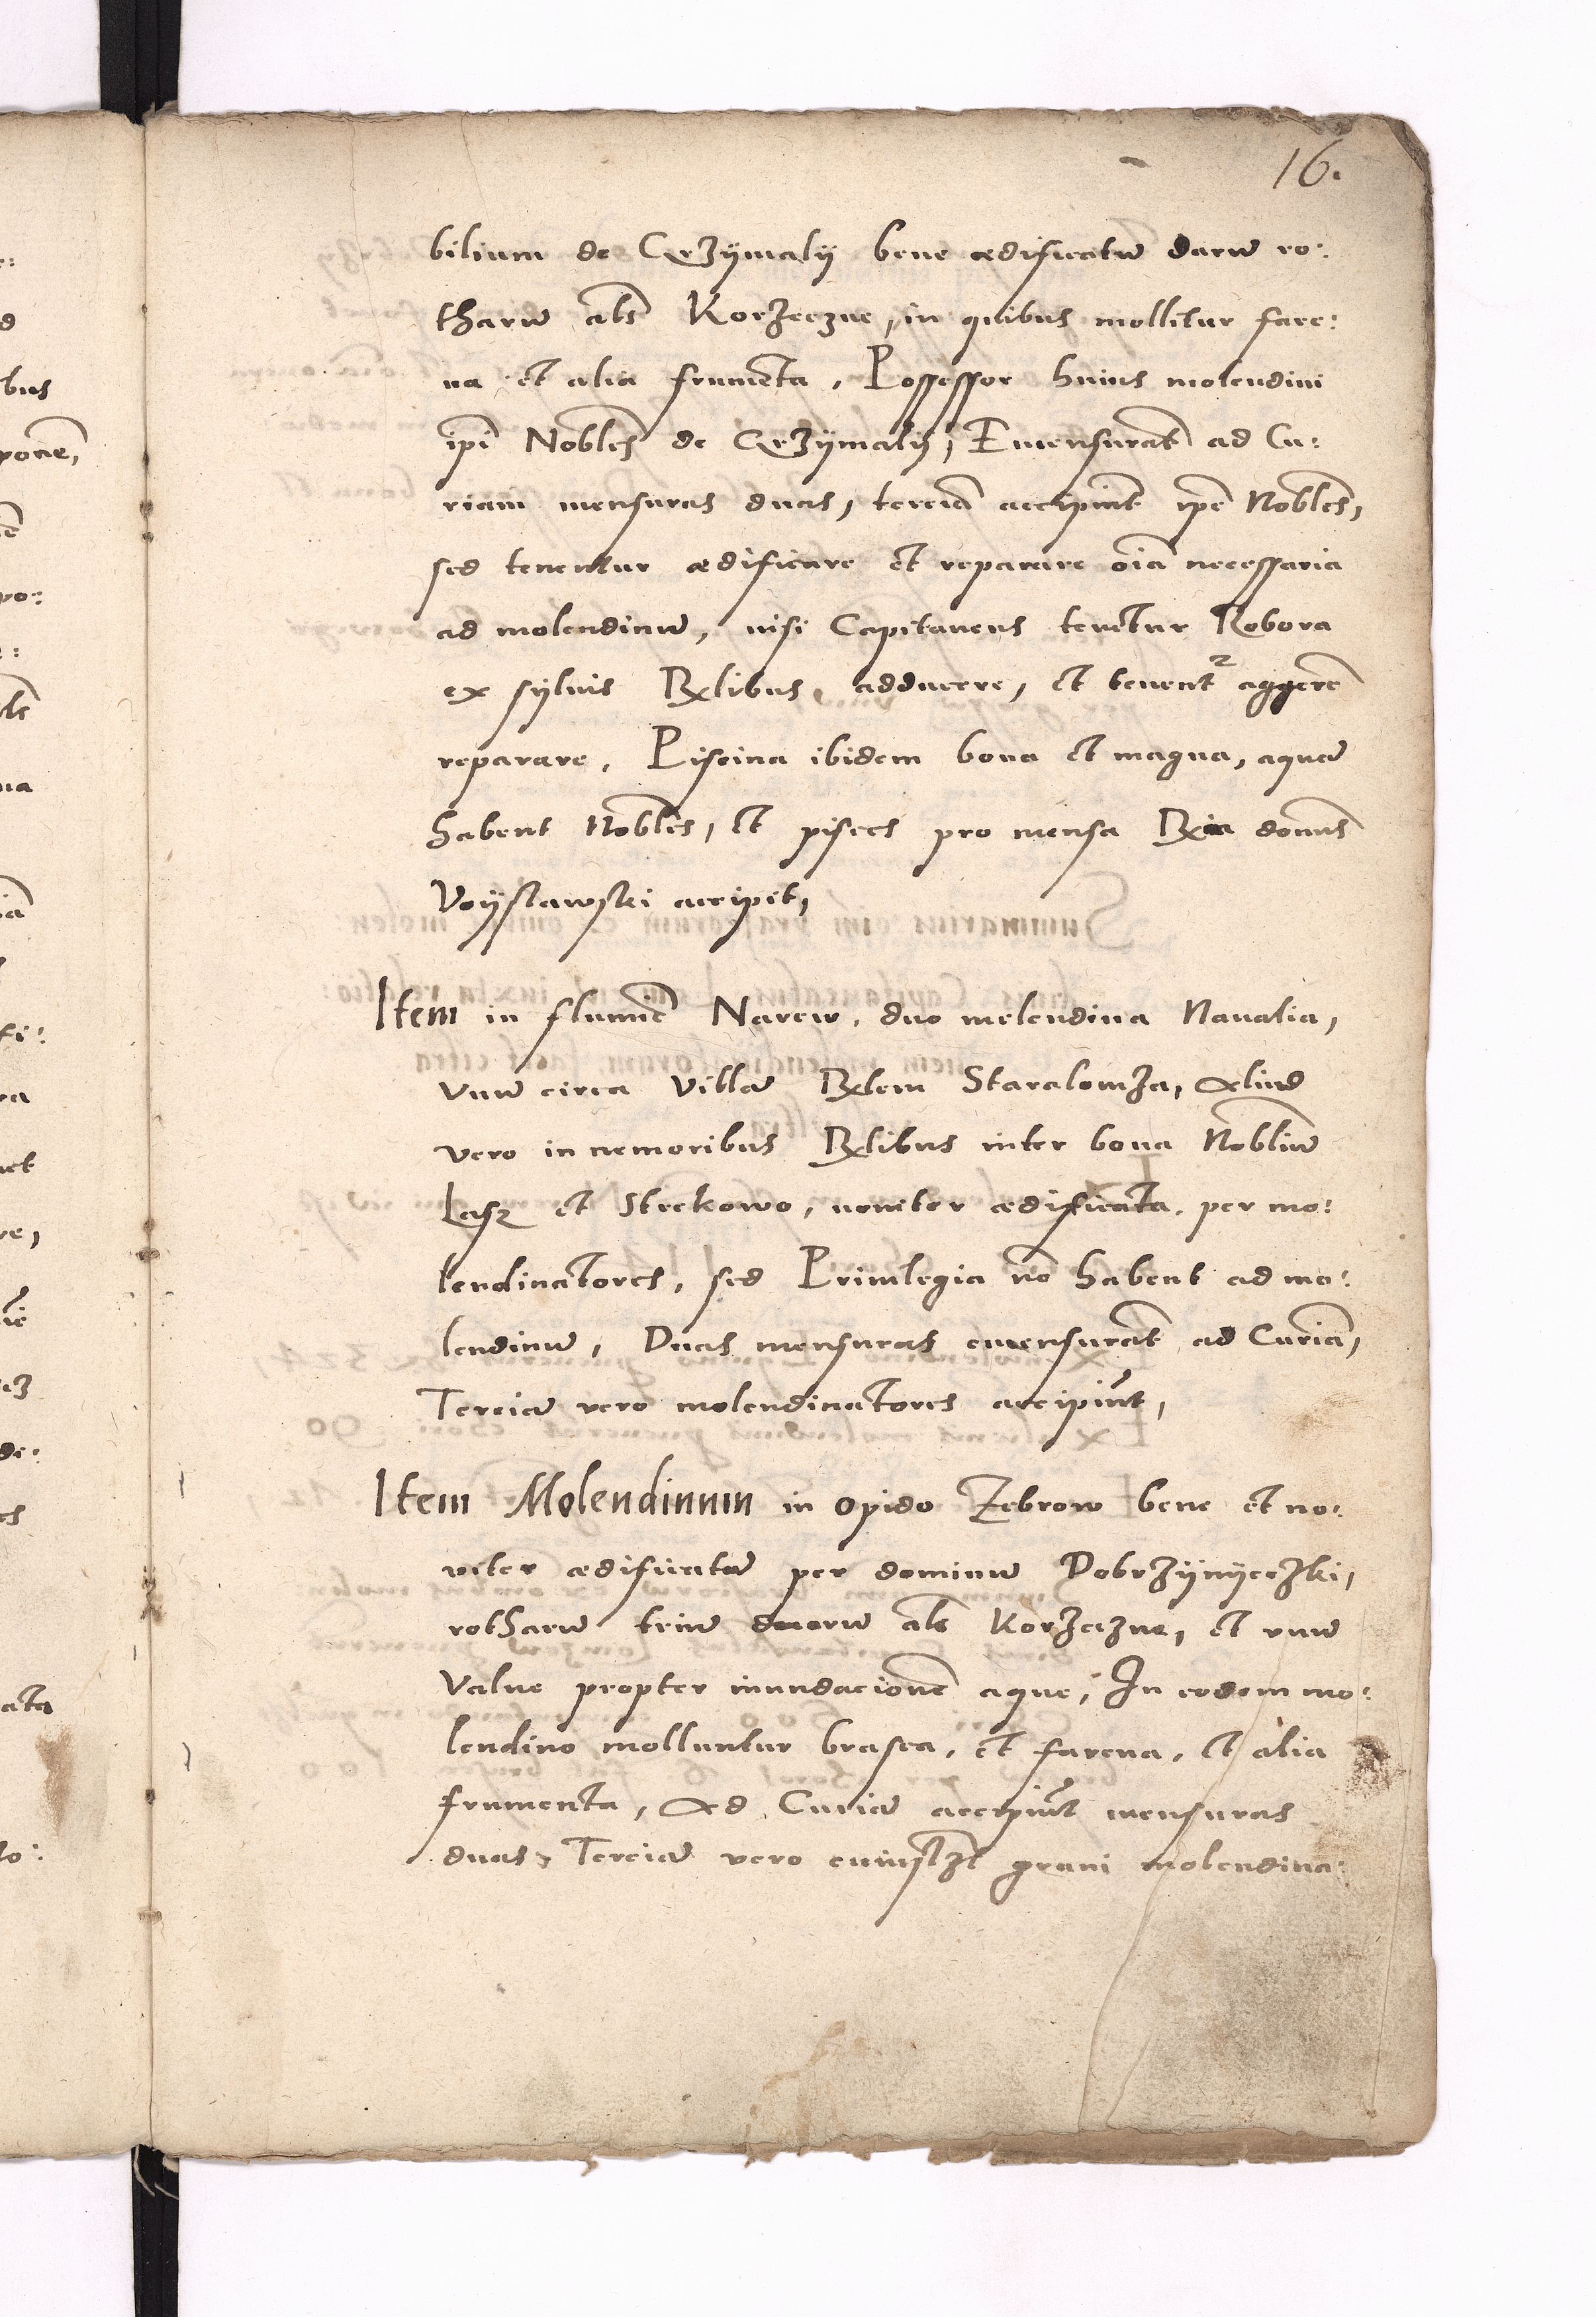 16.
bilium de Grzÿmalÿ bene ædificatū duarū ro:
tharū als Korzeczne, in quibus mollitur fare:
na et alia frumēta, Possessor huius molendini
ipi Nobles de Grzÿmalÿ, Emensurāt ad Cu:
riam mensuras duas, terciā accipiūt ipē Nobles,
sed tenentur ædificare et reparare oīa necessaria
ad molendinū, nisi Capitaneus tenetur Robora
ex sÿluis Rlibus adducere, et tenent2 aggerē
reparare, Piscina ibidem bona et magna, aquā
habent Nobles, et pisces pro mensa Ria domus
Voÿslawski accipit,
Item in flumīe Narew, duo molendina Naualia,
vnū circa villā Rlem Staralomza, Aliud
vero in nemoribus Rlibus inter bona Nobliū
Lasz et Strekowo, nouiter ædificata per mo:
lendinatores, sed Priuilegia nō habent ad mo:
lendinū, Duas mensuras emensurāt ad Curiā,
Terciā vero molendinatores accipiūt,
Item Molendinum in opido Zebrow bene et no:
viter ædificatū per dominū Dobrzÿnÿeczki,
rotharū triū duarū als Korzeczne, et vnū
Valne propter inundacionē aque, In eodem mo:
lendino molluntur brasea, et farena, et alia
frumenta, Ad Curiā accipiūt mensuras
duas, Terciā vero cuiusłzt grani molendina: